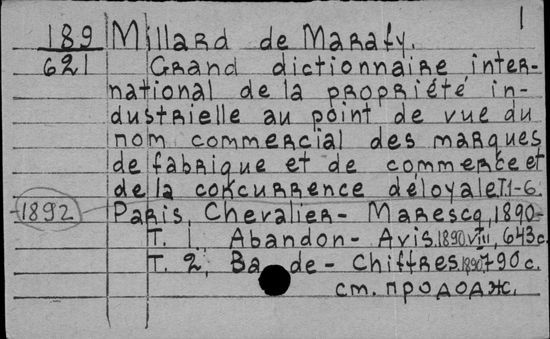 1
189 Millard de Marafy.
621 Grand dictionnaire inter-
national de la propriété in-
dustrielle au point de vue du
nom commercial des marques
de fabrique et de commerce et
de la concurrence déloyale T.1-6.
1892 Paris, Chevalier-Marescq, 1890-
T. 1. Abandon-Avis. 1890 VIII, 643 c.
T. 2, Ba de-Chiffres. 1890 790 c.
см. продолж.